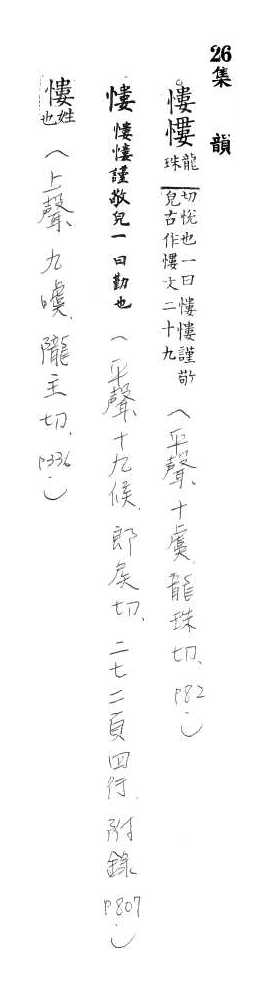 26集韻
慺 龍珠切悅也一曰慺慺謹敬皃古作慺文二十九(平聲、十虞、龍珠切、P82。)
慺 慺慺謹敬皃一曰勤也(平聲、十九侯、郎矦切、二七二頁四行、附錄P807。)
慺 姓也(上聲、九噳、隴主切、P336。)